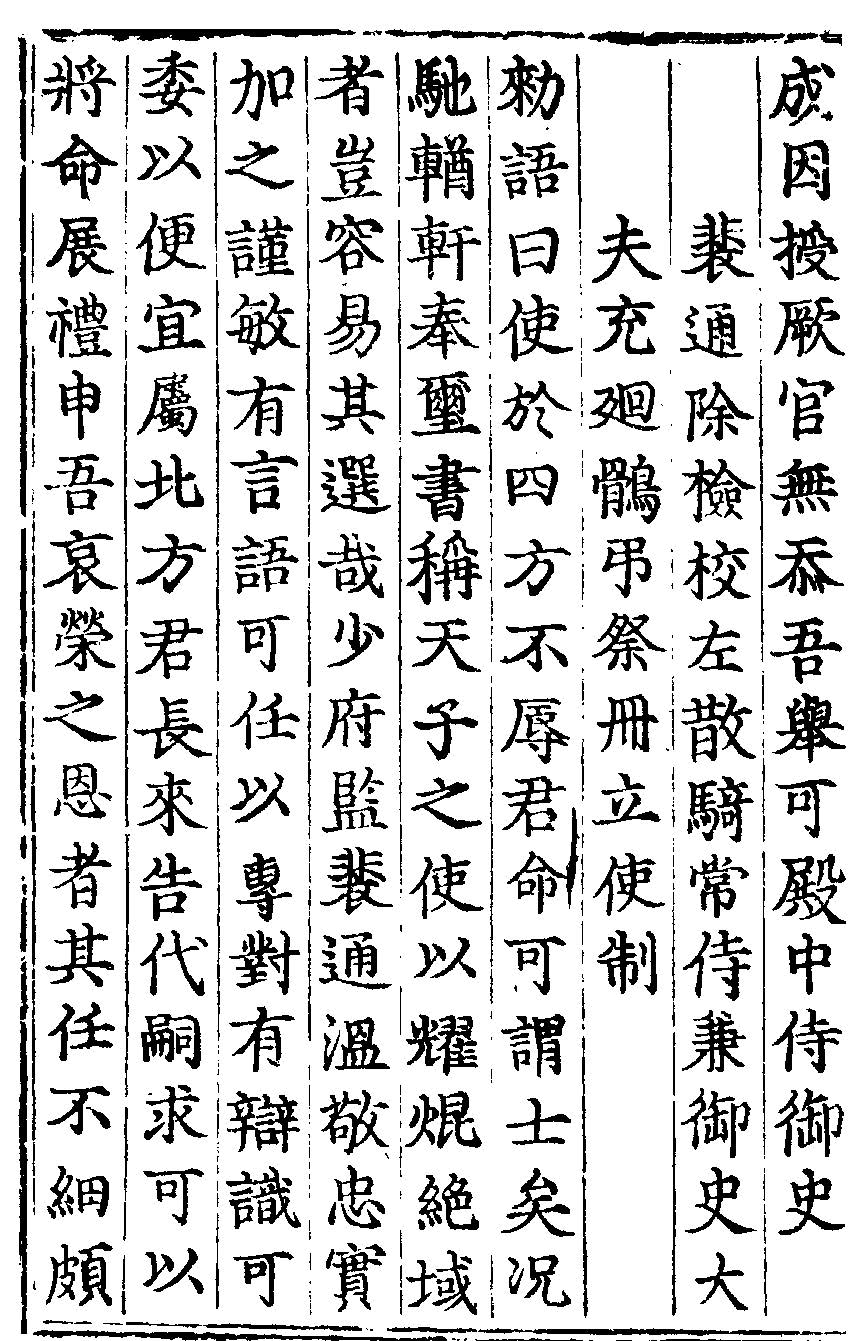 成因授厥官無忝吾舉可殿中侍御史
裴通除檢校左散騎常侍兼御史大
夫充廻鶻弔祭冊立使制
勑語曰使於四方不辱君命可謂士矣况
馳輶軒奉璽書稱天子之使以耀焜絕域
者豈容易其選哉少府監裴通溫敬忠實
加之謹敏有言語可任以專對有辯識可
委以便宜屬北方君長來告代嗣求可以
將命展禮申吾哀榮之恩者其任不細頗